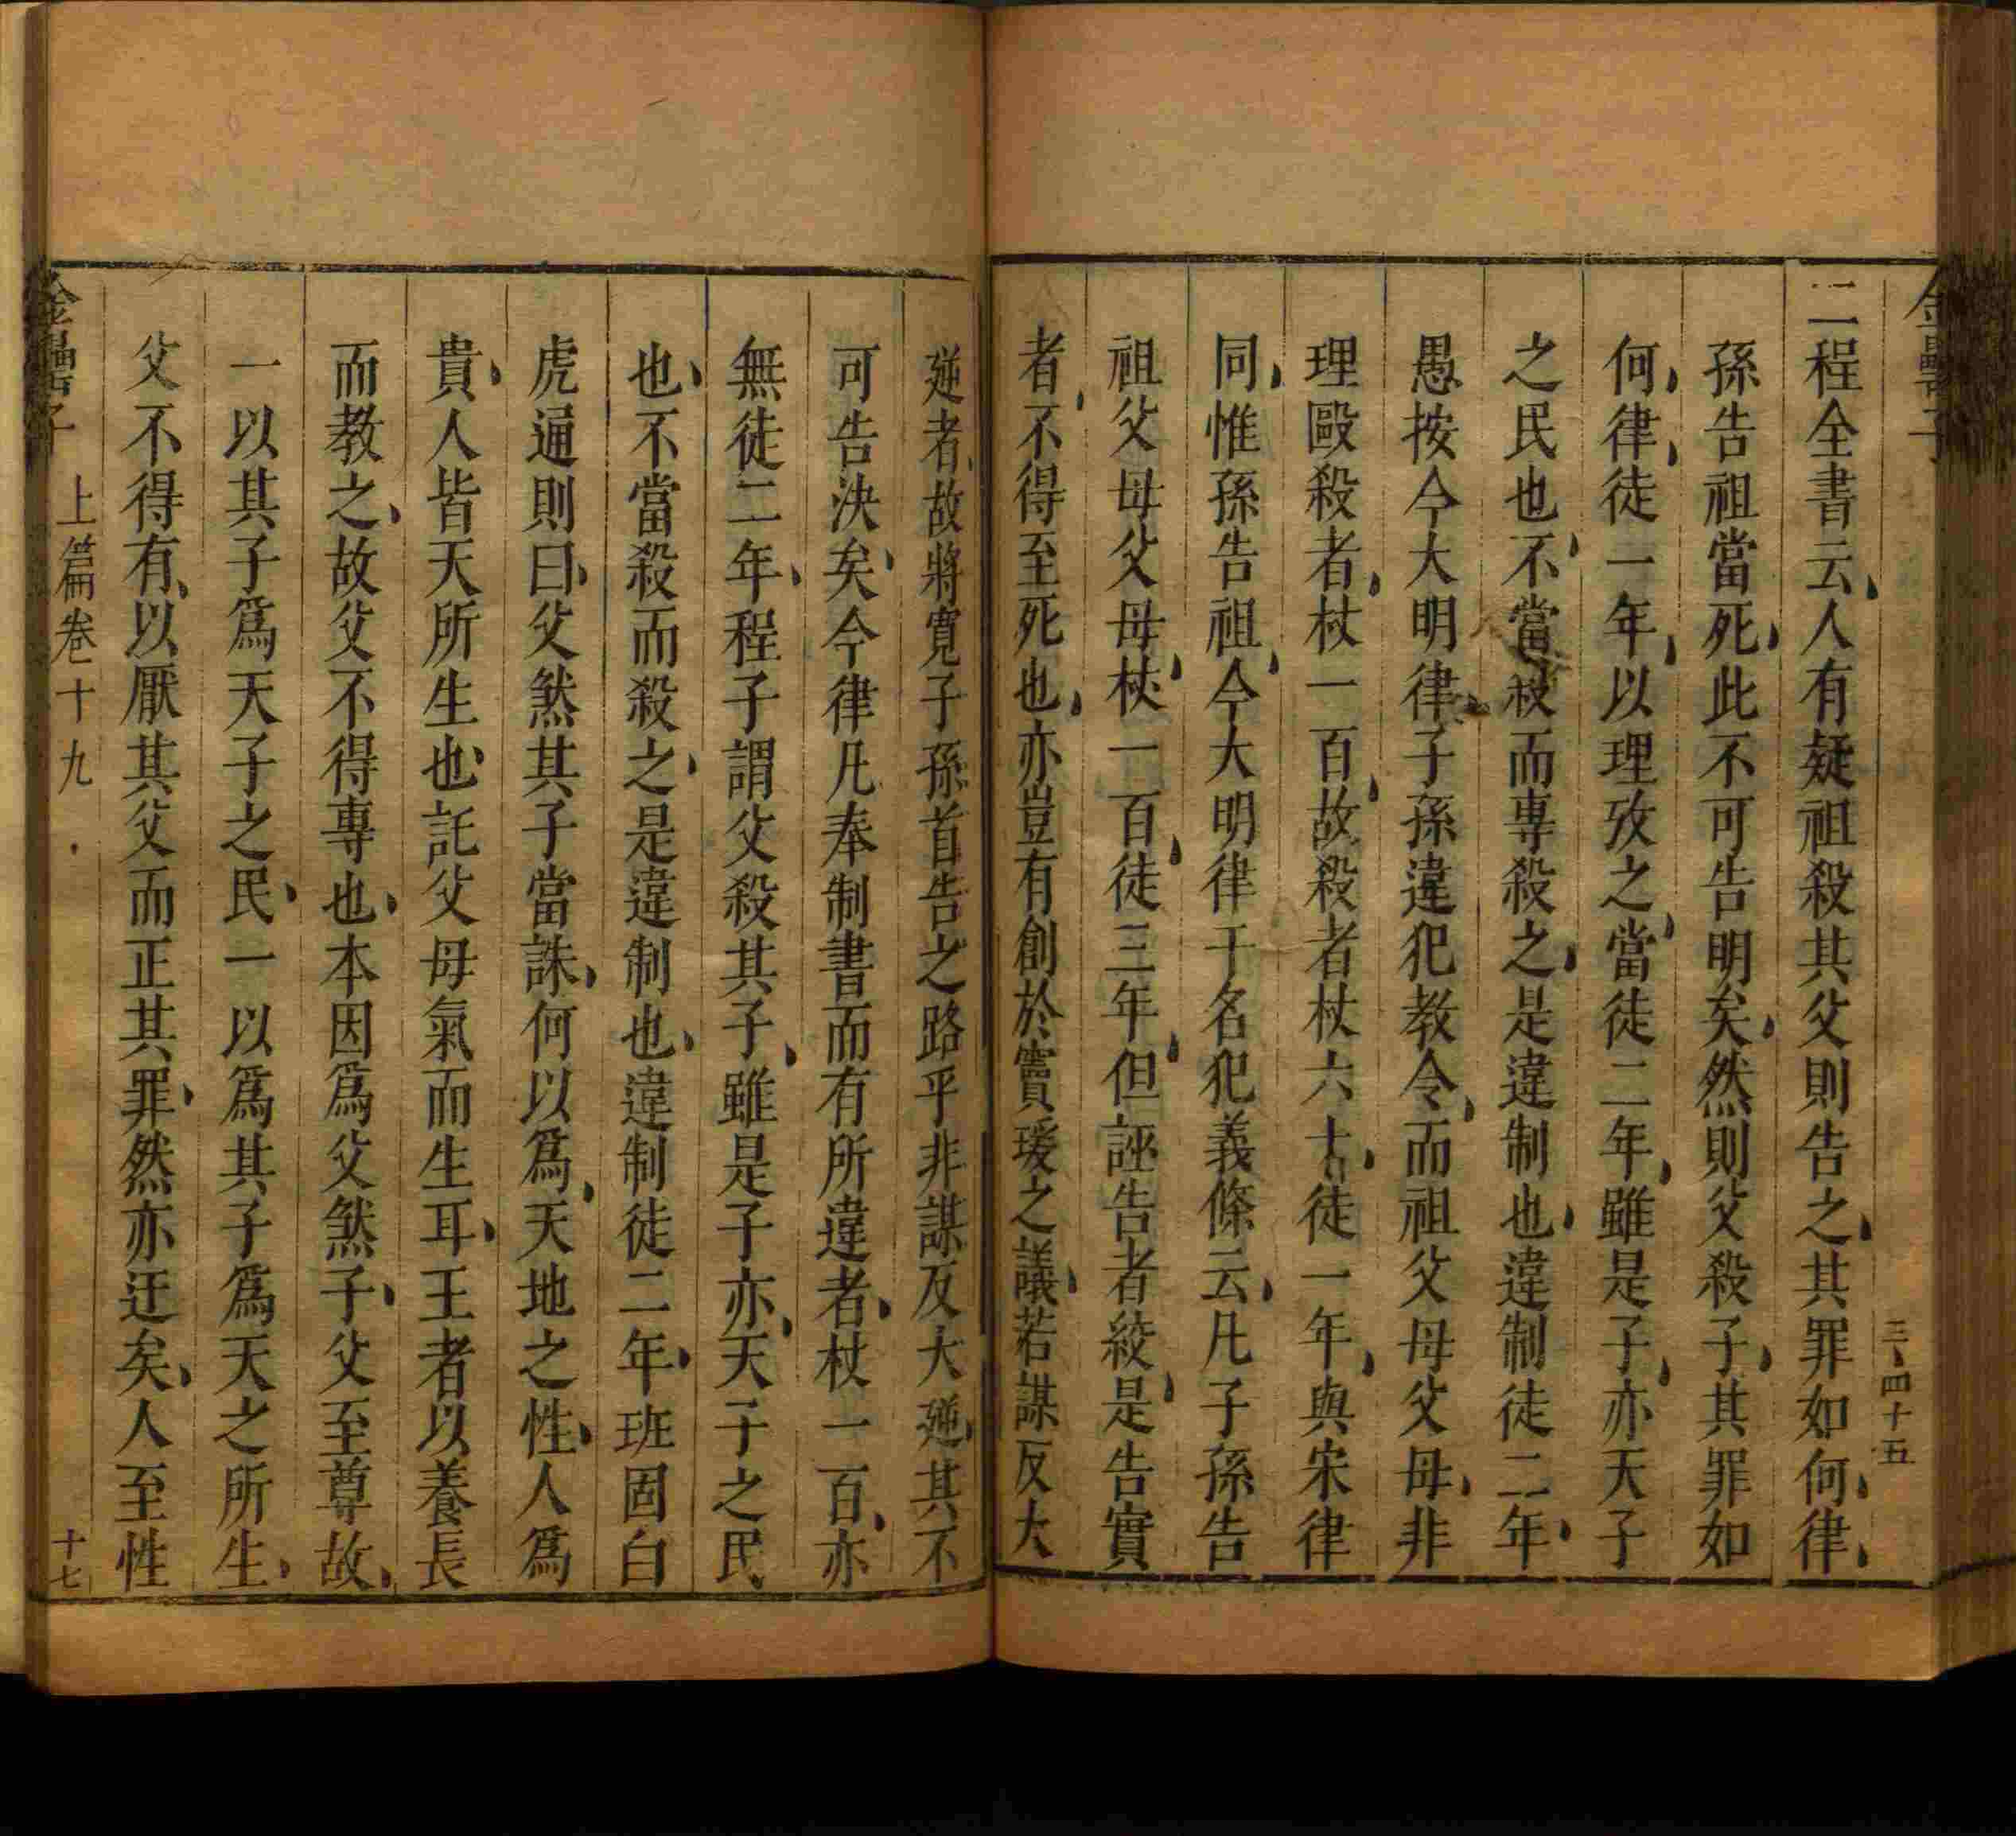 金罍子
三、四十五
二程全書云、人有疑祖殺其父則告之、其罪如何、律、
孫告祖當死、此不可告明矣、然則父殺子、其罪如
何、律、徒一年、以理攷之、當徒二年、雖是子、亦天子
之民也、不當殺而專殺之、是違制也、違制徒二年、
愚按今大明律、子孫違犯教令、而祖父母父母、非
理毆殺者、杖一百、故殺者杖六十、徒一年、與宋律
同、惟孫告祖、今大明律干名犯義條云、凡子孫告
祖父母父母、杖一百、徒三年、但誣告者絞、是告實
者、不得至死也、亦豈有創於竇瑗之議、若謀反大
逆者、故將寬子孫首告之路乎非謀反大逆、其不
可告決矣、今律凡奉制書而有所違者、杖一百、亦
無徒二年、程子謂父殺其子、雖是子亦、天子之民
也、不當殺而殺之、是違制也、違制徒二年、班固白
虎通則曰、父煞其子當誅、何以爲、天地之性、人爲
貴、人皆天所生也、託父母氣而生耳、王者以養長
而教之、故父不得專也、本因爲父煞子、父至尊故、
一以其子爲天子之民、一以爲其子爲天之所生、
父不得有、以厭其父而正其罪、然亦迂矣、人至性
金罍子 上篇卷十九 十七